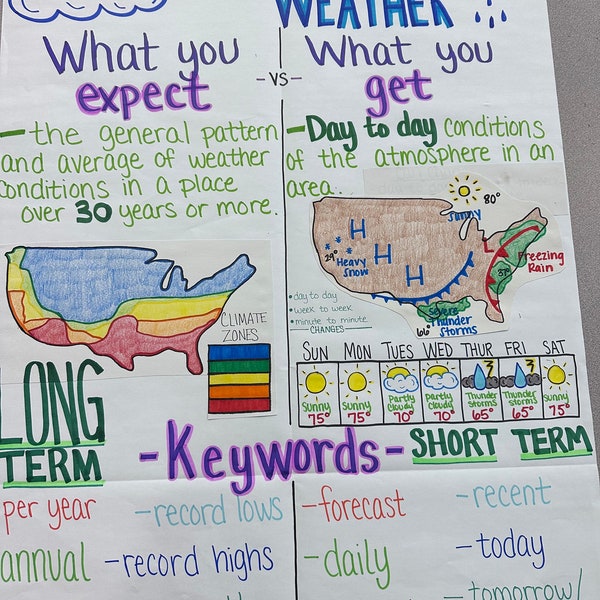 WEATHER
What you
expect
-VS-
What you
get
-the general pattern
and average of weather
conditions in a place
over 30 years or more.
-Day to day conditions
of the atmosphere in an
area...
CLIMATE
ZONES
80°
Sunny
H
H
H
29°
Heavy
Snow
37°
Freezing
Rain
•day to day
•week to week
•minute to minute
CHANGES
Severe
Thunder
Storms
66°
SUN MON TUES WED THUR FRI SAT
Sunny Sunny Partly Cloudy Partly Cloudy Thunder Storms Thunder Storms Sunny
75° 75° 70° 70° 65° 65° 75°
LONG
TERM
-Keywords-
SHORT TERM
per year
-record lows
annual
-record highs
-forecast
-recent
-daily
-today
-tomorrow/